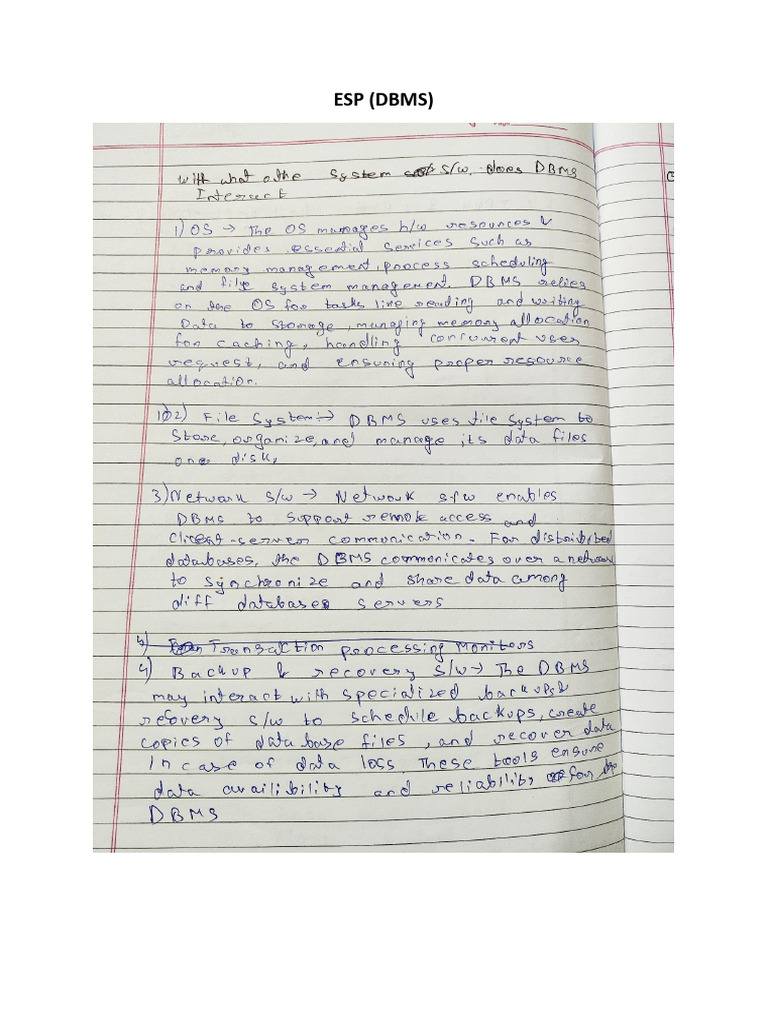 ESP (DBMS)
With what othe System s/w. does DBMS
Intersect
1) OS → The OS manages h/w resources &
provides essential services such as
memory management, process scheduling
and file system management. DBMS relies
on the OS for tasks like reading and writing
Data to storage, managing memory allocation
for caching, handling concurrent user
request, and ensuring proper resource
allocation.
2) File System :→ DBMS uses file system to
Store, organize, and manage its data files
one disk,
3) Network s/w → Network s/w enables
DBMS to support remote access and
client-server communication. For distributed
databases, the DBMS communicates over a network
to synchronize and share data among
diff databases servers
4) Transaction processing Monitors
4) Backup & recovery s/w → The DBMS
may interact with specialized backup &
recovery s/w to schedule backups, create
copies of data base files, and recover data
In case of data loss. These tools ensure
data availibility and reliability for the
DBMS